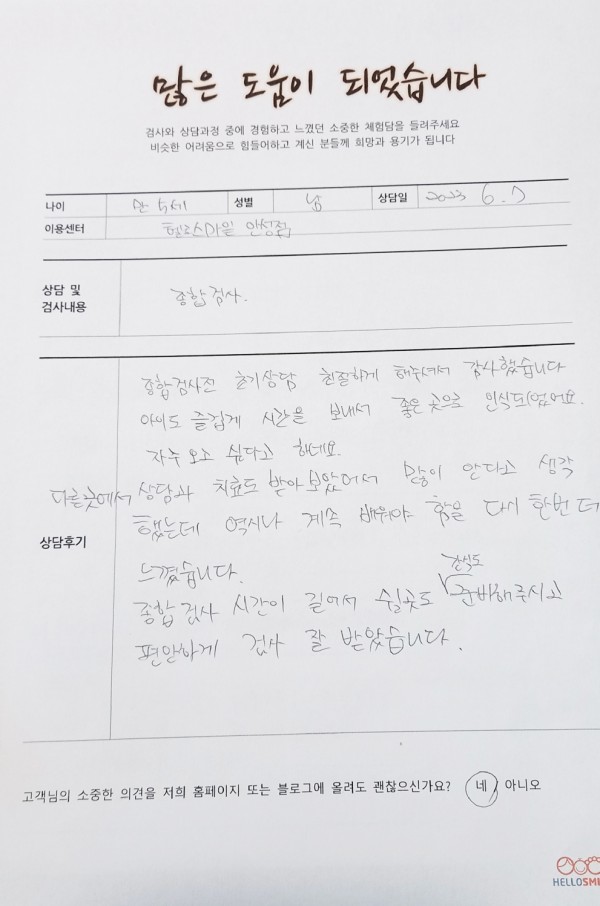 많은 도움이 되었습니다
검사와 상담과정 중에 경험하고 느꼈던 소중한 체험담을 들려주세요
비슷한 어려움으로 힘들어하고 계신 분들께 희망과 용기가 됩니다
나이 만 5세 성별 남 상담일 2023 6. 7
이용센터 헬로스마일 안성점
상담 및
검사내용
종합검사.
종합검사전 초기상담 친절하게 해주셔서 감사했습니다
아이도 즐겁게 시간을 보내서 좋은 곳으로 인식되었어요.
자주 오고 싶다고 하네요.
다른곳에서 상담과 치료도 받아보았어서 많이 안다고 생각
했는데 역시나 계속 배워야 함을 다시 한번 더
상담후기
느꼈습니다.
간식도
종합검사 시간이 길어서 쉴곳도 준비해주시고
편안하게 검사 잘 받았습니다.
고객님의 소중한 의견을 저희 홈페이지 또는 블로그에 올려도 괜찮으신가요? 네 / 아니오
HELLOSMI